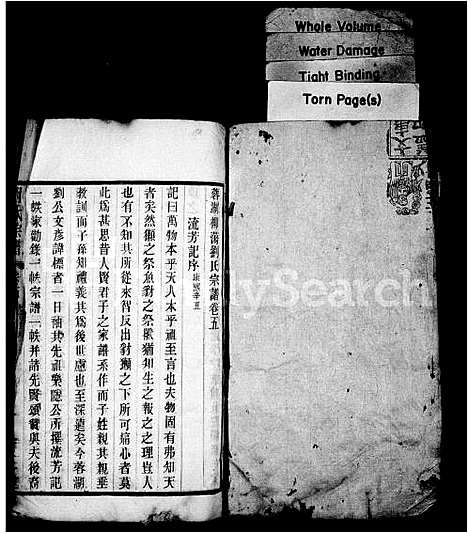 Whole Volume
Water Damage
Tight Binding
Torn Page(s)
蓉湖柳蕩劉氏宗譜卷五
流芳記序
記曰萬物本乎天人本乎祖至言也夫物固有弗知天
者矣然獺之祭魚豺之祭獸猶知生之報之之理豈人
也有不知其所從來胥反出豺獺之下所可痛心者莫
此為甚思昔人賢君子之家譜系作而子姓親其親垂
教訓而子孫知禮義其為後世慮也至深遠矣今蓉湖
劉公文彥諱標者一日涌其先祖樂隱公所撰流芳記
一帙家勸錄一帙宗譜二帙并諸先賢頌贊與夫後裔